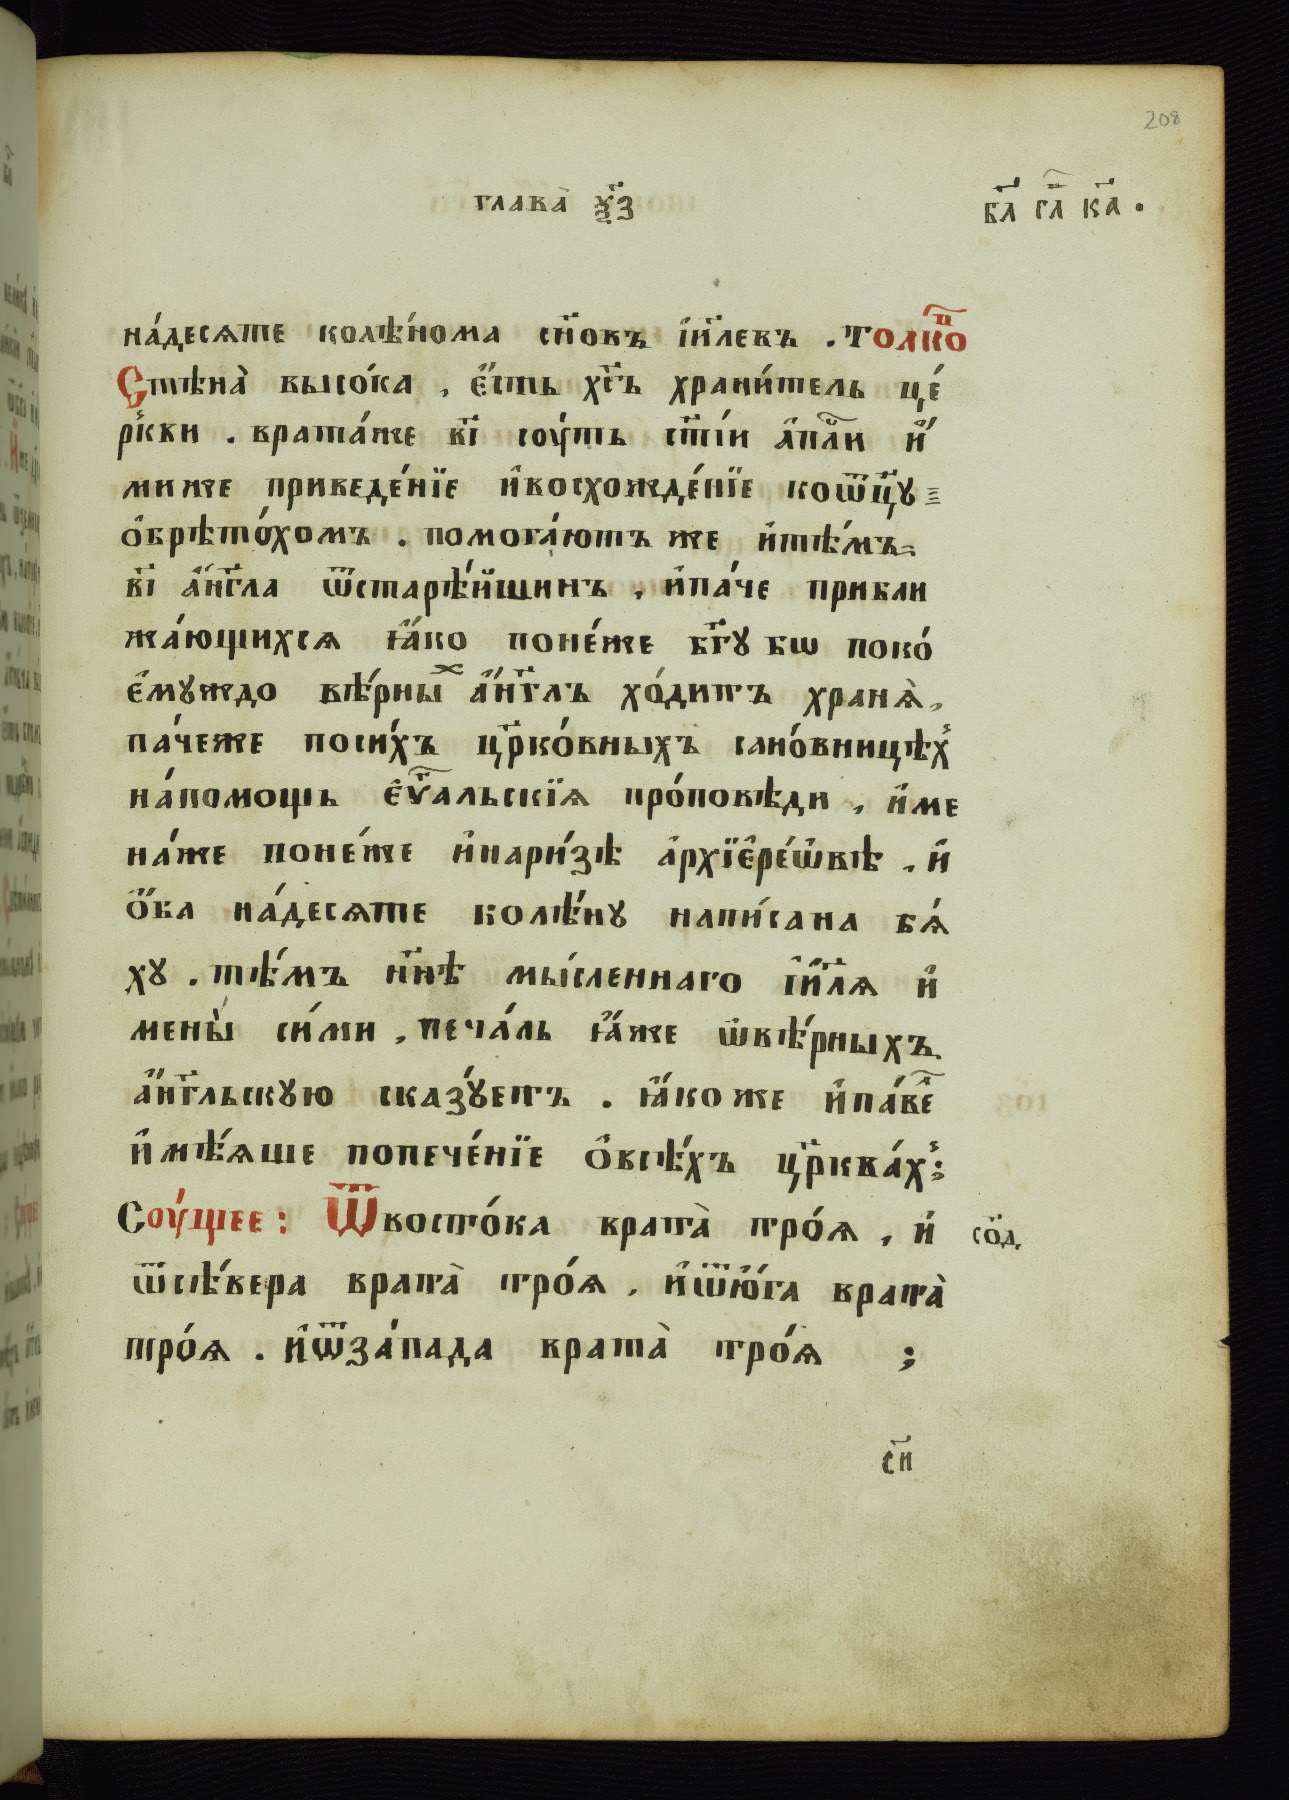 208
глава̀ ѯ҃з
в҃л г҃л к҃а .
на́десѧте колѣ́нома сн҃овъ і҆и҃левъ . Толко
Стѣна̀ высо́ка , є҆́сть хс҃ъ храни́тель це́
ркви . врата́же в҃і сꙋ́ть ст҃і́и а҆пⷭ҇ли и҆́
миже приведе́нїе и҆восхожде́нїе коѿц҃ꙋ
ѻ҆брѣто́хомъ . помога́ютъ же и҆тѣ́мъ
в҃і а҆́нг҃ла ѿстарѣ́йшинъ , и҆па́че прибли
жа́ющихсѧ ꙗ҆́ко поне́же бг҃ꙋ бѡ поко́
є҆мꙋждо вѣ́рныⷯ а҆́нг҃лъ хо́дитъ храня̀ ,
па́чеже поси́хъ цр҃ко́вныхъ сано́вницѣхъ
на́помощь є҆ѵⷢ҇альскїѧ про́повѣди , и҆ме
на́же поне́же и҆нари́зѣ а҆рхїере́ѡвѣ , и҆́
ѻ҆́ба на́десѧте колѣ́нꙋ напи́сана бѧ́
хꙋ . тѣ́мъ нн҃ѣ мы́сленнаго і҆и҃лѧ и҆
мены̀ си́ми , печа́ль ꙗ҆́же ѡ҆вѣ́рныхъ
а҆́нг҃льскꙋю сказꙋ́етъ . ꙗ҆́коже и҆па́ве
и҆мѣ́ѧше попече́нїе ѻ҆всѣ́хъ цр҃ква́хъ :
Соу́щее : Ѿвосто́ка врата̀ тро́ѧ , и҆́ соⷣ
ѿсѣ́вера врата̀ тро́ѧ , и҆ѿю҆́га врата̀
тро́ѧ . и҆ѿза́пада врата̀ тро́ѧ ;
с҃и